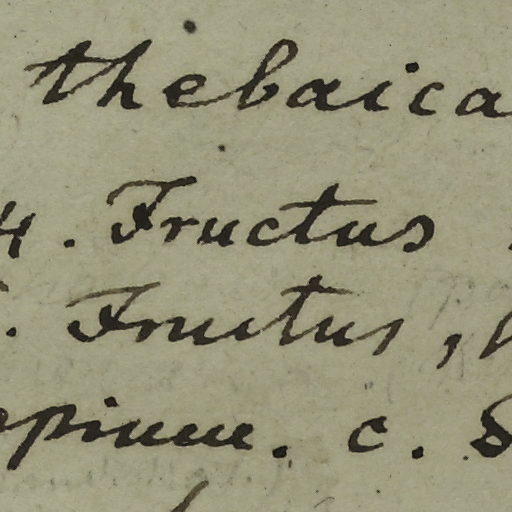 thebaica
4. Fructus
. Fructus,
c.